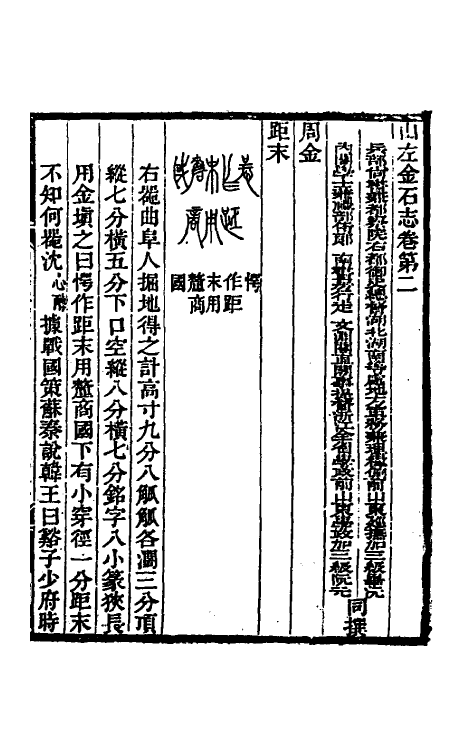 山左金石志卷第二
兵部尚書兼都察院右都御史總督湖北湖南等處地方軍務兼理糧餉前山東巡撫加三級畢沅
內閣學士兼禮部侍郎 南書房行走 文淵閣直閣事提督浙江全省學政前山東學政加三級阮元
同撰
周金
距末
愕
作距
末用
釐商
國
右器曲阜人掘地得之計高寸九分八觚觚各濶三分頂
縱七分橫五分下口空縱八分橫七分銘字八小篆狹長
用金塡之曰愕作距末用釐商國下有小穿徑一分距末
不知何器沈心醇據戰國策蘇秦說韓王曰谿子少府時